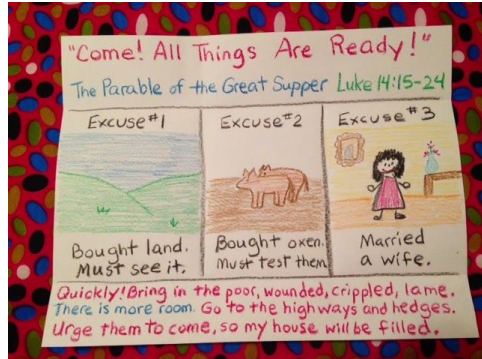 "Come! All Things Are Ready!"
The Parable of the Great Supper Luke 14:15-24
Excuse #1
Excuse #2
Excuse #3
Bought land.
Must see it.
Bought oxen.
Must test them
Married
a wife.
Quickly! Bring in the poor, wounded, crippled, lame.
There is more room. Go to the highways and hedges.
Urge them to come, so my house will be filled.